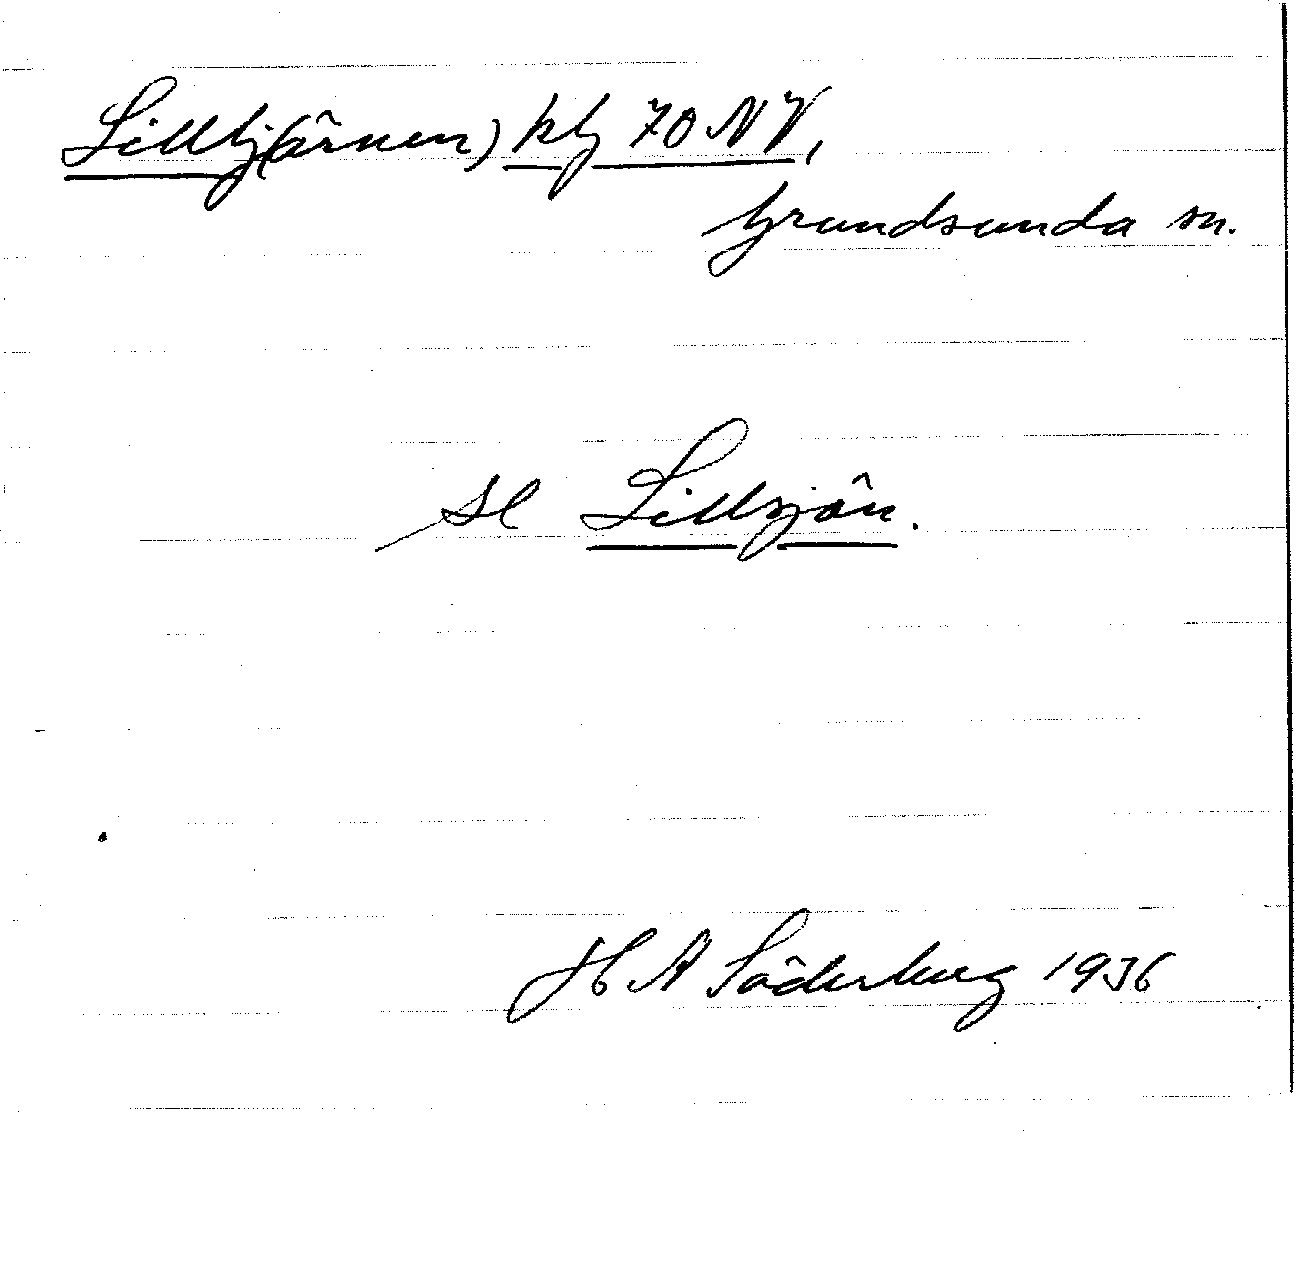 Lilltj(ärnen) kbj 70 NV,
Grundsunda sn.
Se Lillsjön.
H A Söderberg 1936